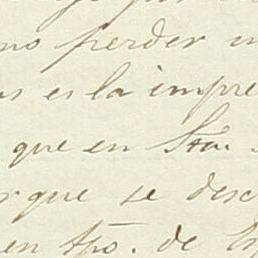 no perder
es la impre
que en Sta.
rque se desc
en tpo. de